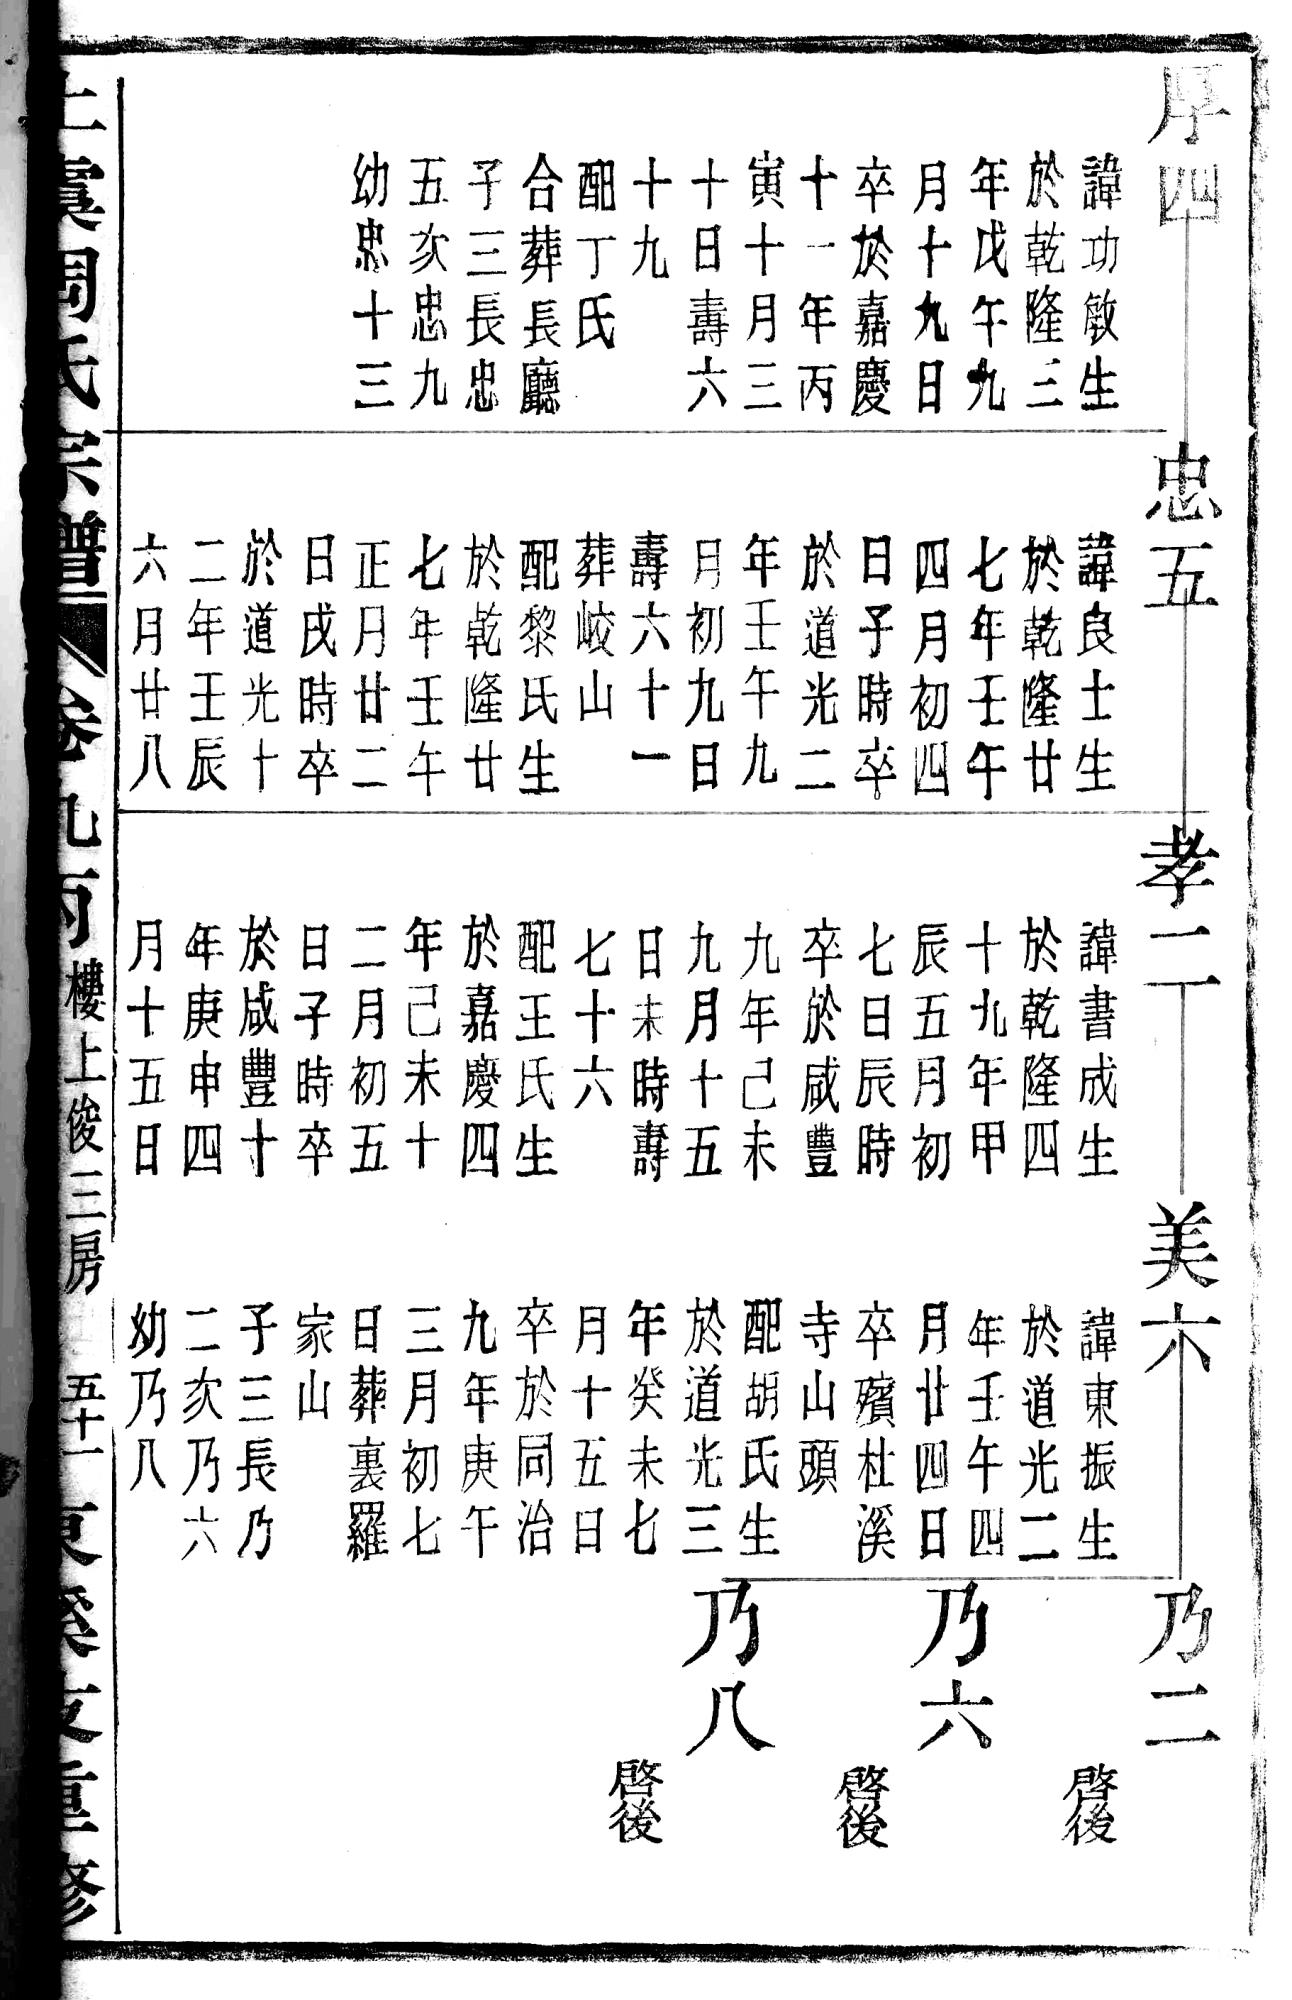 厚四
諱功敏生
於乾隆三
年戊午九
月十九日
卒於嘉慶
十一年丙
寅十月三
十日壽六
十九
配丁氏
合葬長廳
子三長忠
五次忠九
幼忠十三
忠五
諱良士生
於乾隆廿
七年壬午
四月初四
日子時卒
於道光二
年壬午九
月初九日
壽六十一
葬峧山
配黎氏生
於乾隆廿
七年壬午
正月廿二
日戌時卒
於道光十
二年壬辰
六月廿八
孝二
諱書成生
於乾隆四
十九年甲
辰五月初
七日辰時
卒於咸豐
九年己未
九月十五
日未時壽
七十六
配王氏生
於嘉慶四
年己未十
二月初五
日子時卒
於咸豐十
年庚申四
月十五日
美六
諱東振生
於道光二
年壬午四
月廿四日
卒殯杜溪
寺山頭
配胡氏生
於道光三
年癸未七
月十五日
卒於同治
九年庚午
三月初七
日葬裏羅
家山
子三長乃
二次乃六
幼乃八
乃二
啓後
乃六
啓後
乃八
啓後
上虞周氏宗譜
卷九丙
樓上俊三房
五十一
東溪支重修